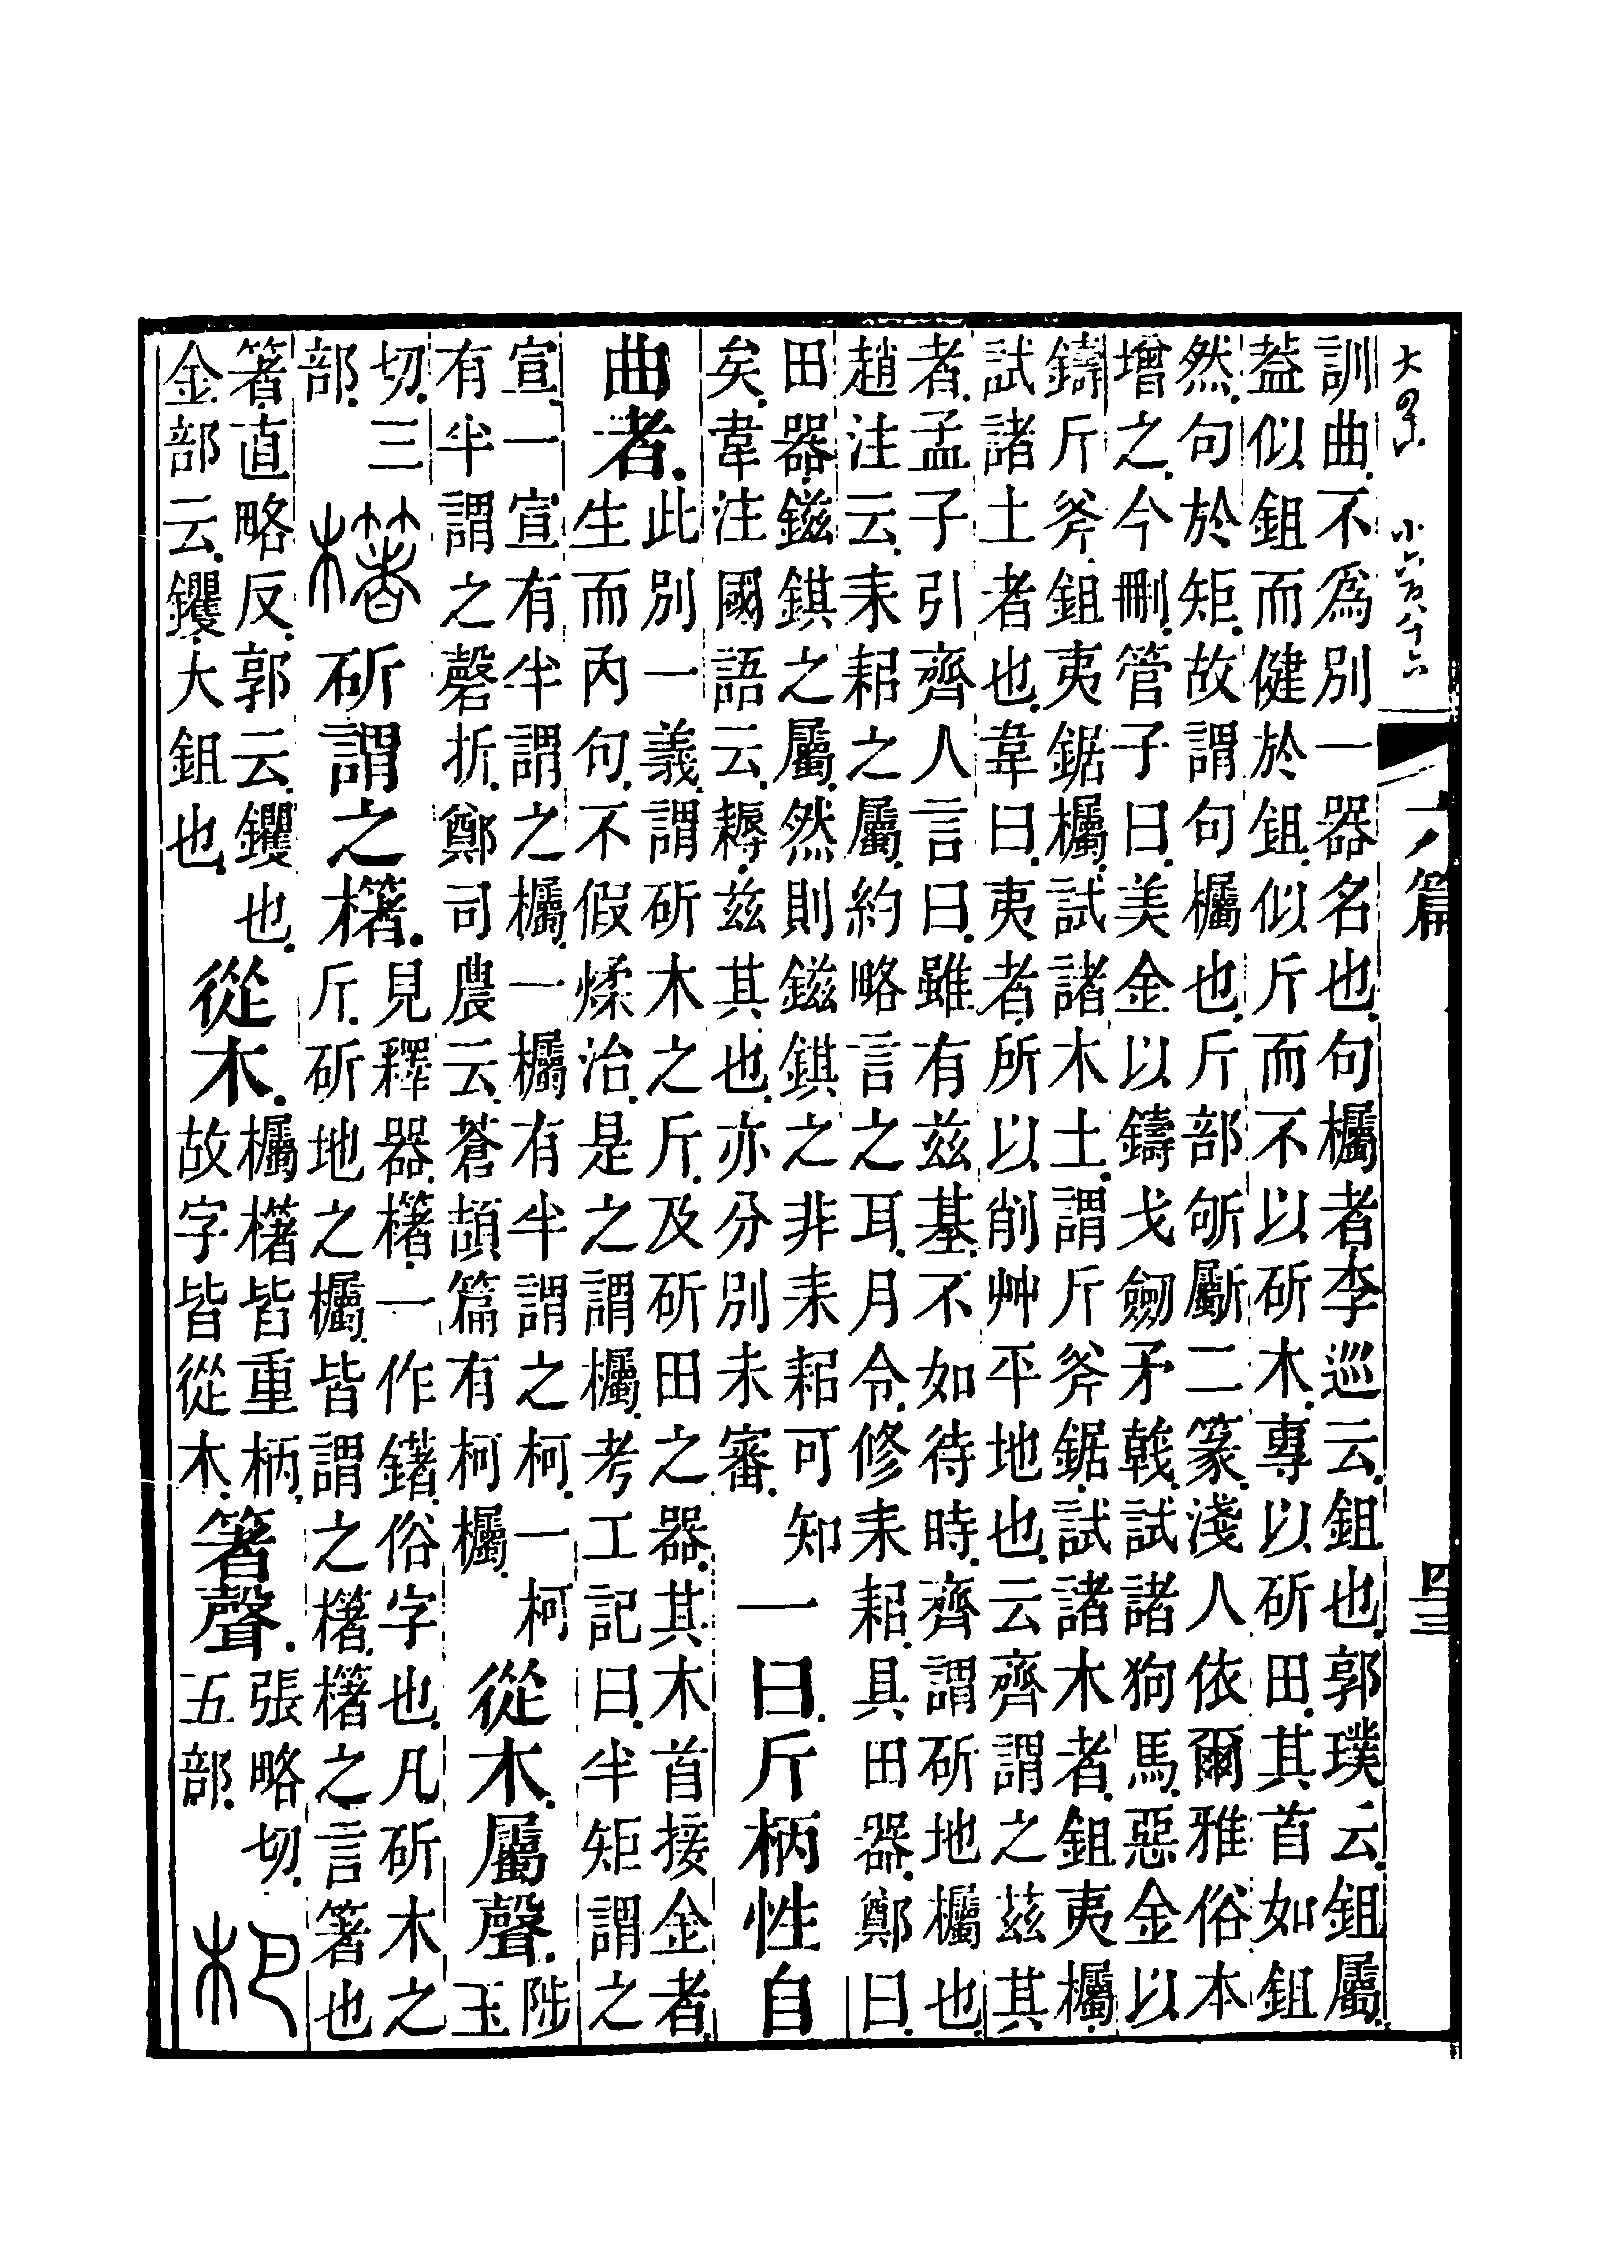 大四 小六百八十六
六篇 四三
訓曲.不爲別一器名也.句欘者李巡云.鉏也.郭璞云.鉏屬.
葢似鉏而健於鉏.似斤而不以斫木.專以斫田.其首如鉏
然.句於矩.故謂句欘也.斤部斪斸二篆.淺人依爾雅俗本
增之.今刪.管子曰.美金以鑄戈劒矛戟.試諸狗馬.惡金以
鑄斤斧.鉏夷鋸欘.試諸木土.謂斤斧鋸.試諸木者.鉏夷欘.
試諸土者也.韋曰.夷者.所以削艸平地也.云齊謂之茲其
者.孟子引齊人言曰.雖有茲基.不如待時.齊謂斫地欘也.
趙注云.耒耜之屬.約略言之耳.月令.修耒耜.具田器.鄭曰.
田器.鎡錤之屬.然則鎡錤之非耒耜可知
矣.韋注國語云.耨.茲其也.亦分別未審.
一曰.斤柄性自
曲者.
此別一義.謂斫木之斤.及斫田之器.其木首接金者.
生而內句.不假煣治.是之謂欘.考工記曰.半矩謂之
宣.一宣有半謂之欘.一欘有半謂之柯.一柯
有半謂之磬折.鄭司農云.蒼頡篇有柯欘.
從木.屬聲.
陟
玉
切.三
部.
櫡
斫謂之櫡.
見釋器.櫡.一作鐯.俗字也.凡斫木之
斤.斫地之欘.皆謂之櫡.櫡之言箸也
箸.直略反.郭云.钁也.
金部云.钁.大鉏也.
從木.
欘櫡皆重柄.
故字皆從木.
箸聲.
張略切.
五部.
杞